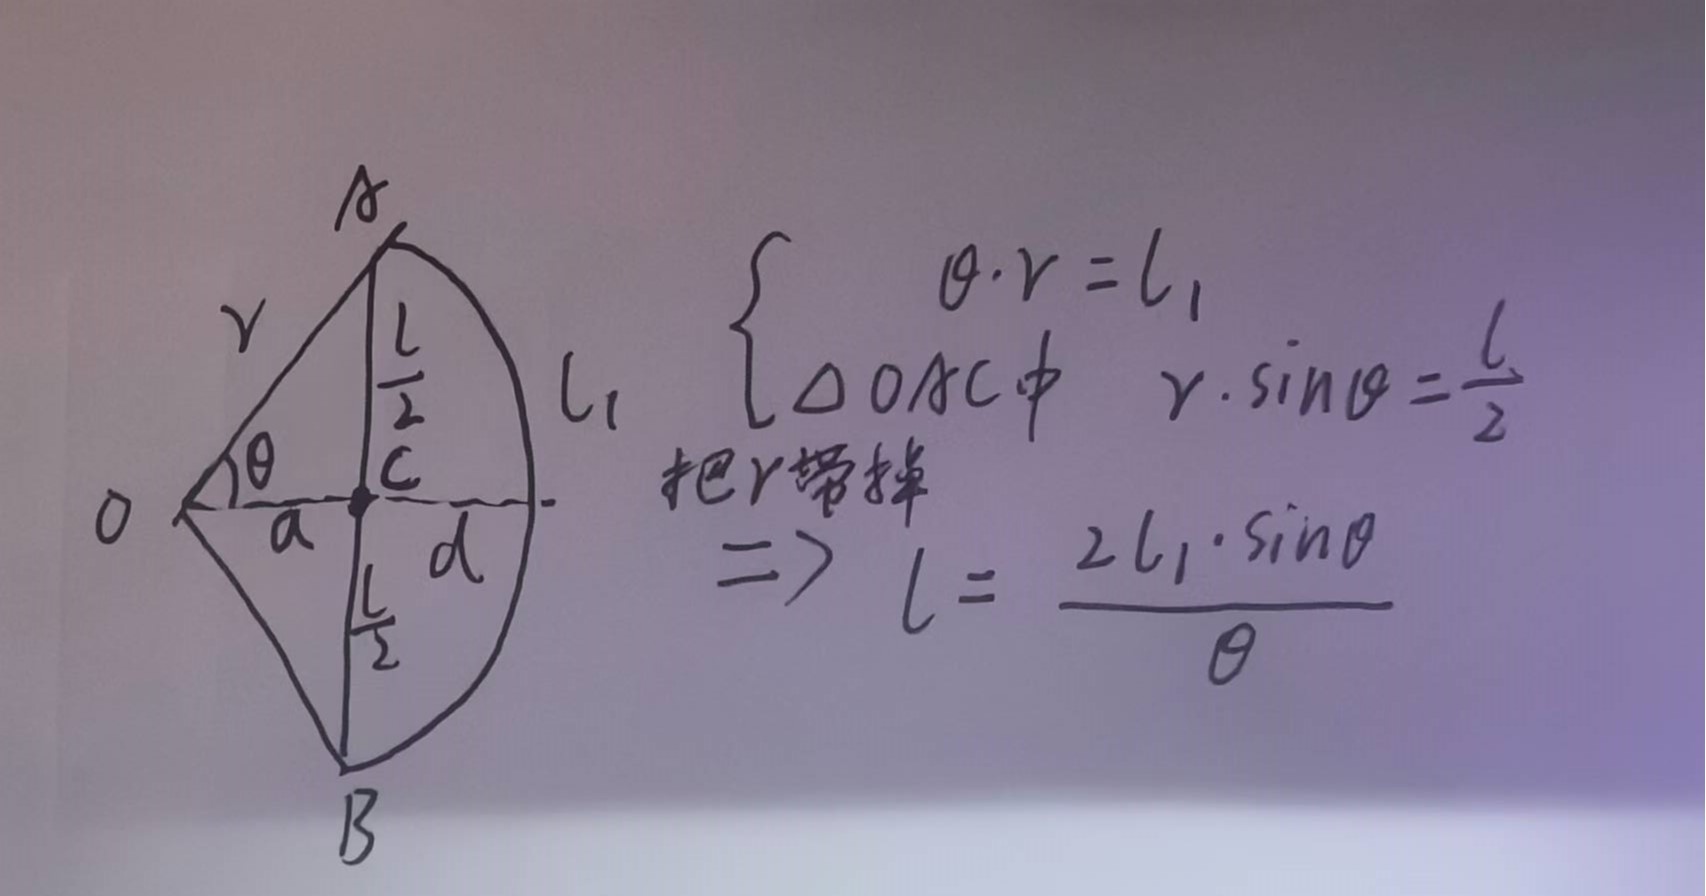 A
r
l/2
l₁
θ
C
O
a
d
l/2
B
{ θ·r = l₁
△OAC中 r·sinθ = l/2
把r带掉
=> l = 2l₁·sinθ / θ